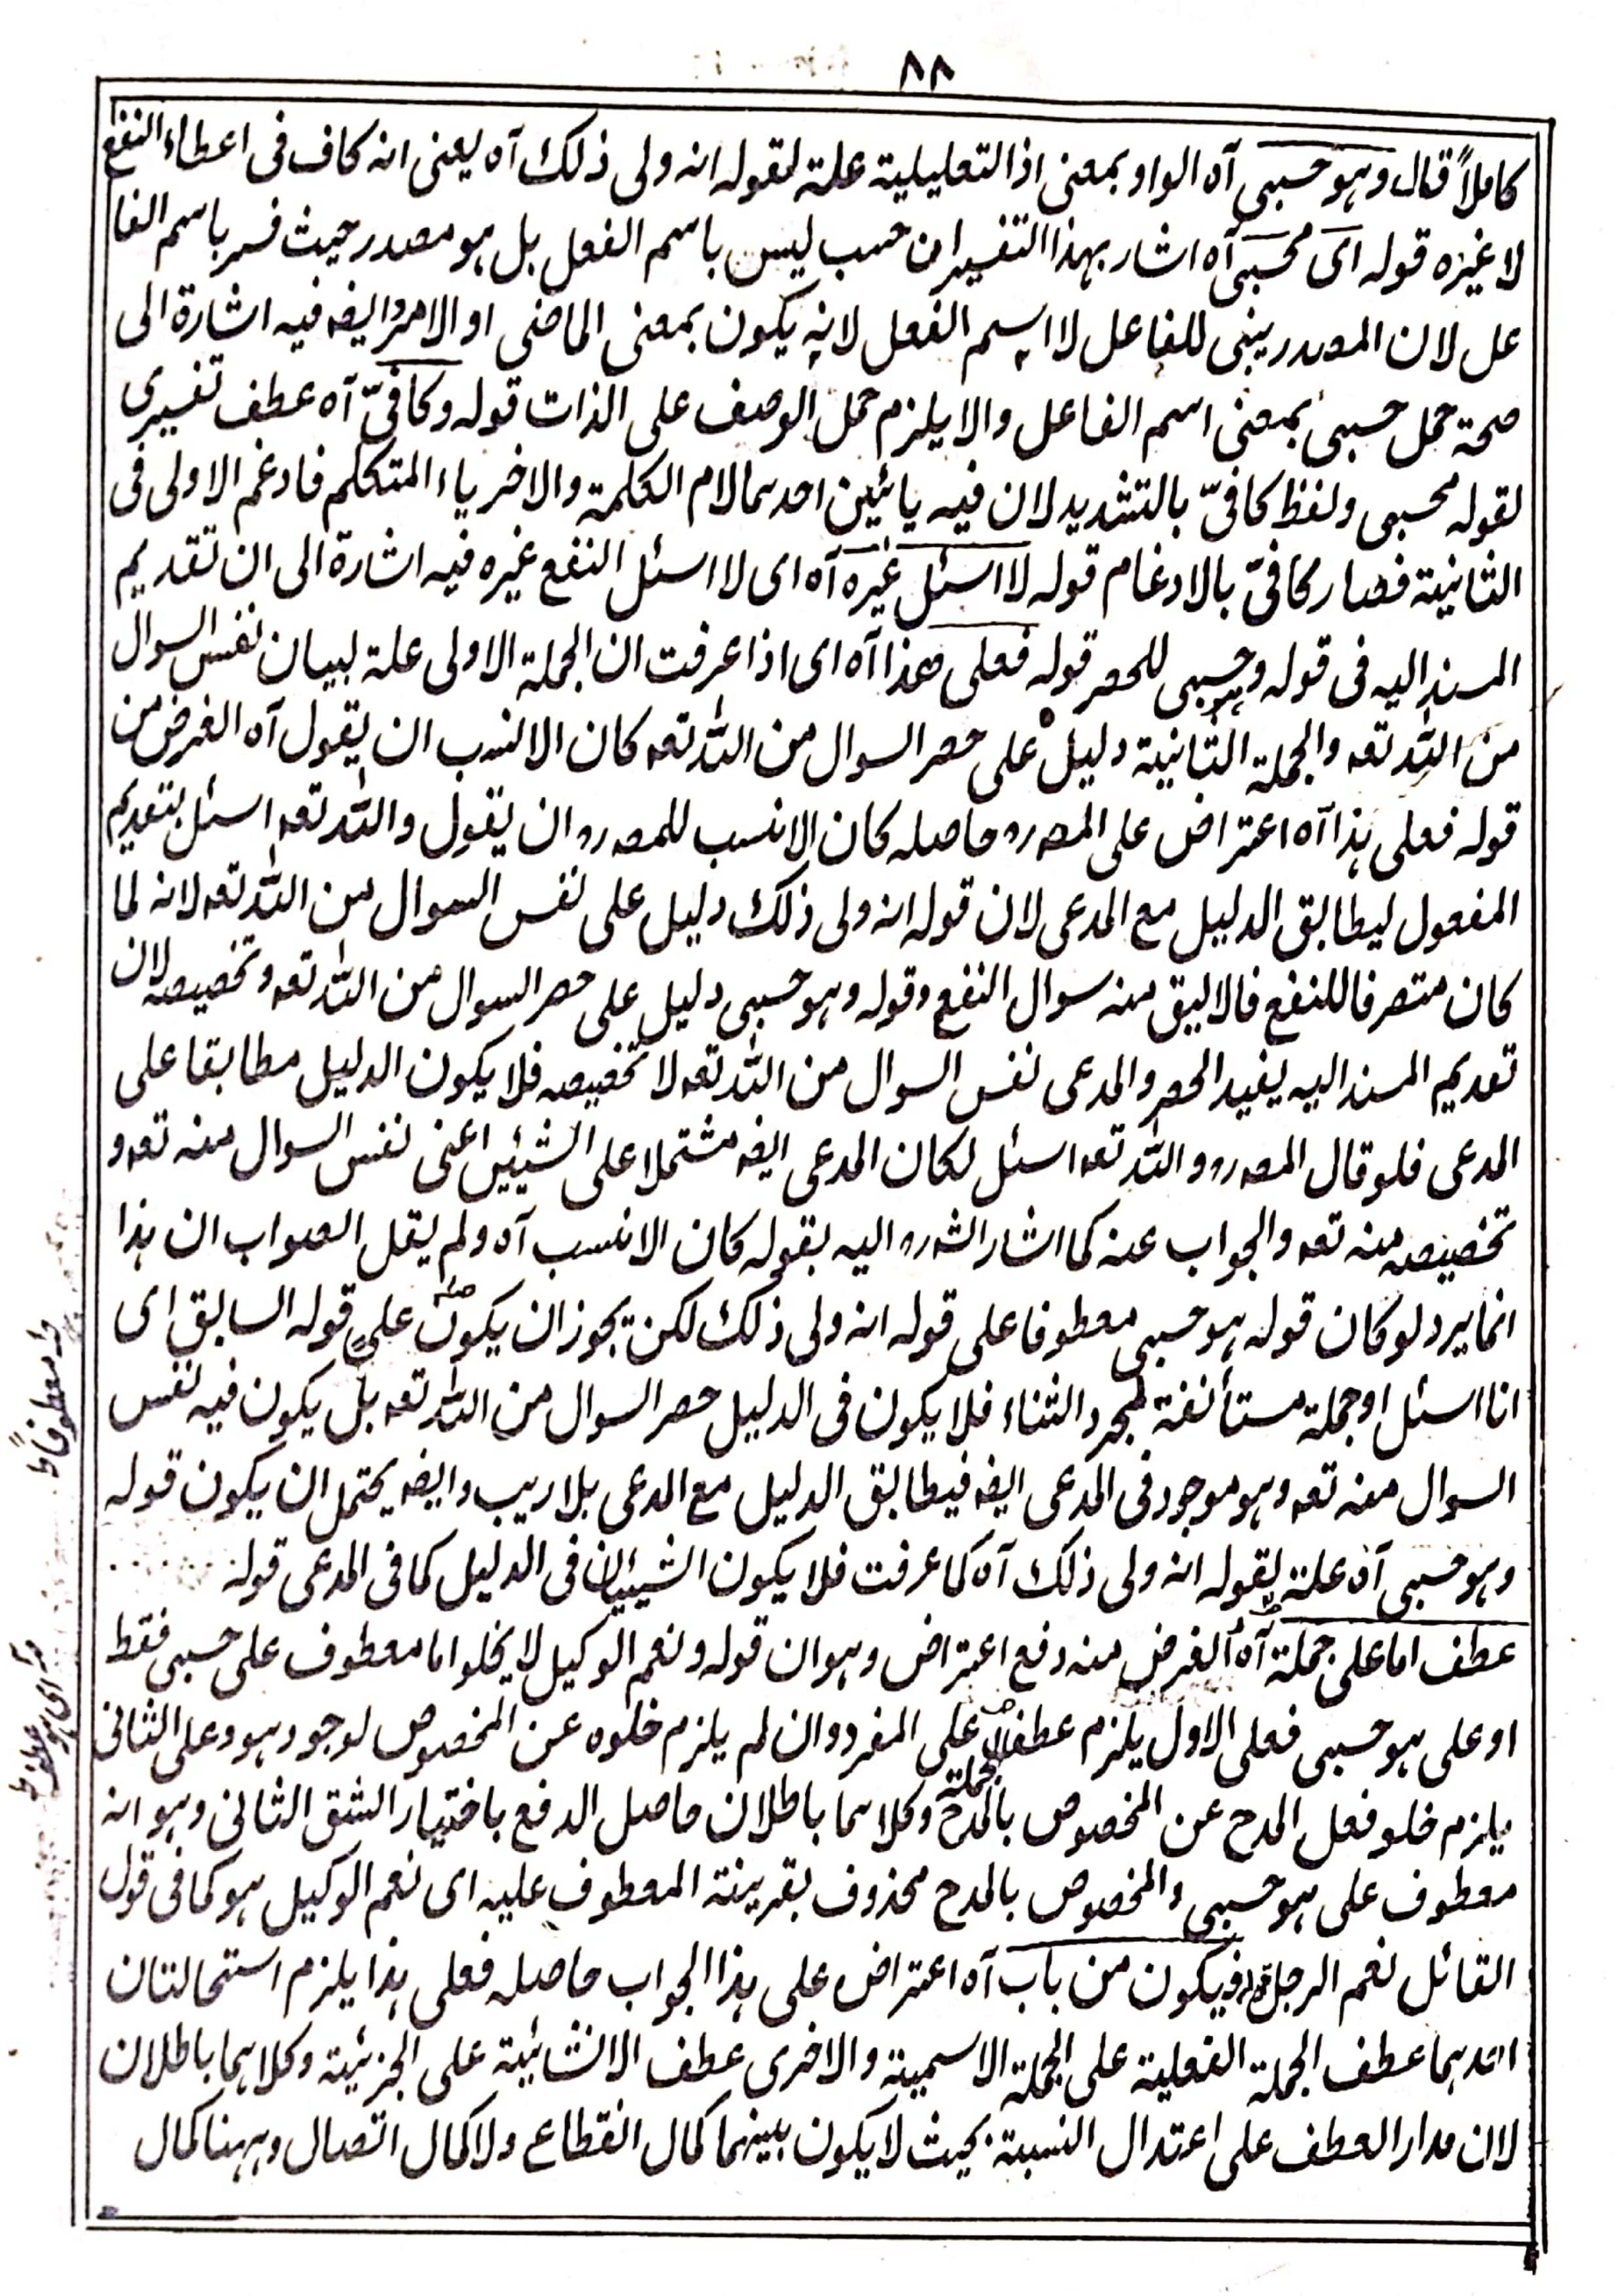 ٨٨
كاملاً قال وهو حسبى آه الواو بمعنى اذ التعليلية علة لقوله انه ولى ذلك آه يعنى انه كاف فى اعطاء النفع
لا غيره قوله اى محسبى آه اشار بهذا التفسير ان حسب ليس باسم الفعل بل هو مصدر حيث فسر باسم الفا
عل لان المصدر يبنى للفاعل لا اسم الفعل لانه يكون بمعنى الماضى او الامر وايضه فيه اشارة الى
صحة حمل حسبى بمعنى اسم الفاعل والا يلزم حمل الوصف على الذات قوله وكافىّ آه عطف تفسيرى
لقوله محسبى ولفظ كافىّ بالتشديد لان فيه يائين احدهما لام الكلمة والاخر ياء المتكلم فادغم الاولى فى
الثانية فصار كافىّ بالادغام قوله لا اسئل غيره آه اى لا اسئل النفع غيره فيه اشارة الى ان تقديم
المسند اليه فى قوله وهو حسبى للحصر قوله فعلى هذا آه اى اذا عرفت ان الجملة الاولى علة لبيان نفس السوال
من الله تعه والجملة الثانية دليل على حصر السوال من الله تعه كان الانسب ان يقول آه الغرض من
قوله فعلى هذا آه اعتراض على المصره حاصله كان الانسب للمصره ان يقول والله تعه اسئل بتقديم
المفعول ليطابق الدليل مع المدعى لان قوله انه ولى ذلك دليل على نفس السوال من الله تعه لانه لما
كان متصرفا للنفع فالاليق منه سوال النفع وقوله وهو حسبى دليل على حصر السوال من الله تعه وتخصيصه لان
تقديم المسند اليه يفيد الحصر والمدعى نفس السوال من الله تعه لا تخصيصه فلا يكون الدليل مطابقا على
المدعى فلو قال المصره والله تعه اسئل لكان المدعى ايضه مشتملا على الشيئين اعنى نفس السوال منه تعه و
تخصيصه منه تعه والجواب عنه كما اشار الشره اليه بقوله كان الانسب آه ولم يقل الصواب ان هذا
انما يرد لو كان قوله هو حسبى معطوفا على قوله انه ولى ذلك لكن يجوز ان يكون على قوله السابق اى
انا اسئل او جملة مستأنفة لمجرد الثناء فلا يكون فى الدليل حصر السوال من الله تعه بل يكون فيه نفس
السوال منه تعه وهو موجود فى المدعى ايضه فيطابق الدليل مع المدعى بلا ريب وايضه يحتمل ان يكون قوله
وهو حسبى آه علة لقوله انه ولى ذلك آه كما عرفت فلا يكون الشيئيان فى الدليل كما فى المدعى قوله
عطف اما على جملة آه الغرض منه دفع اعتراض وهو ان قوله ونعم الوكيل لا يخلو اما معطوف على حسبى فقط
او على هو حسبى فعلى الاول يلزم عطف الجملة على المفرد وان لم يلزم خلوه عن المخصوص لوجود هو وعلى الثانى
يلزم خلو فعل المدح عن المخصوص بالمدح وكلاهما باطلان حاصل الدفع باختيار الشق الثانى وهو انه
معطوف على هو حسبى والمخصوص بالمدح محذوف بقرينة المعطوف عليه اى نعم الوكيل هو كما فى قول
القائل نعم الرجل قوله فيكون من باب آه اعتراض على هذا الجواب حاصله فعلى هذا يلزم استحالتان
احدهما عطف الجملة الفعلية على الجملة الاسمية والاخرى عطف الانشائية على الجزئية وكلاهما باطلان
لان مدار العطف على اعتدال النسبة بحيث لا يكون بينهما كمال انقطاع ولا كمال اتصال وههنا كمال
معطوفاً